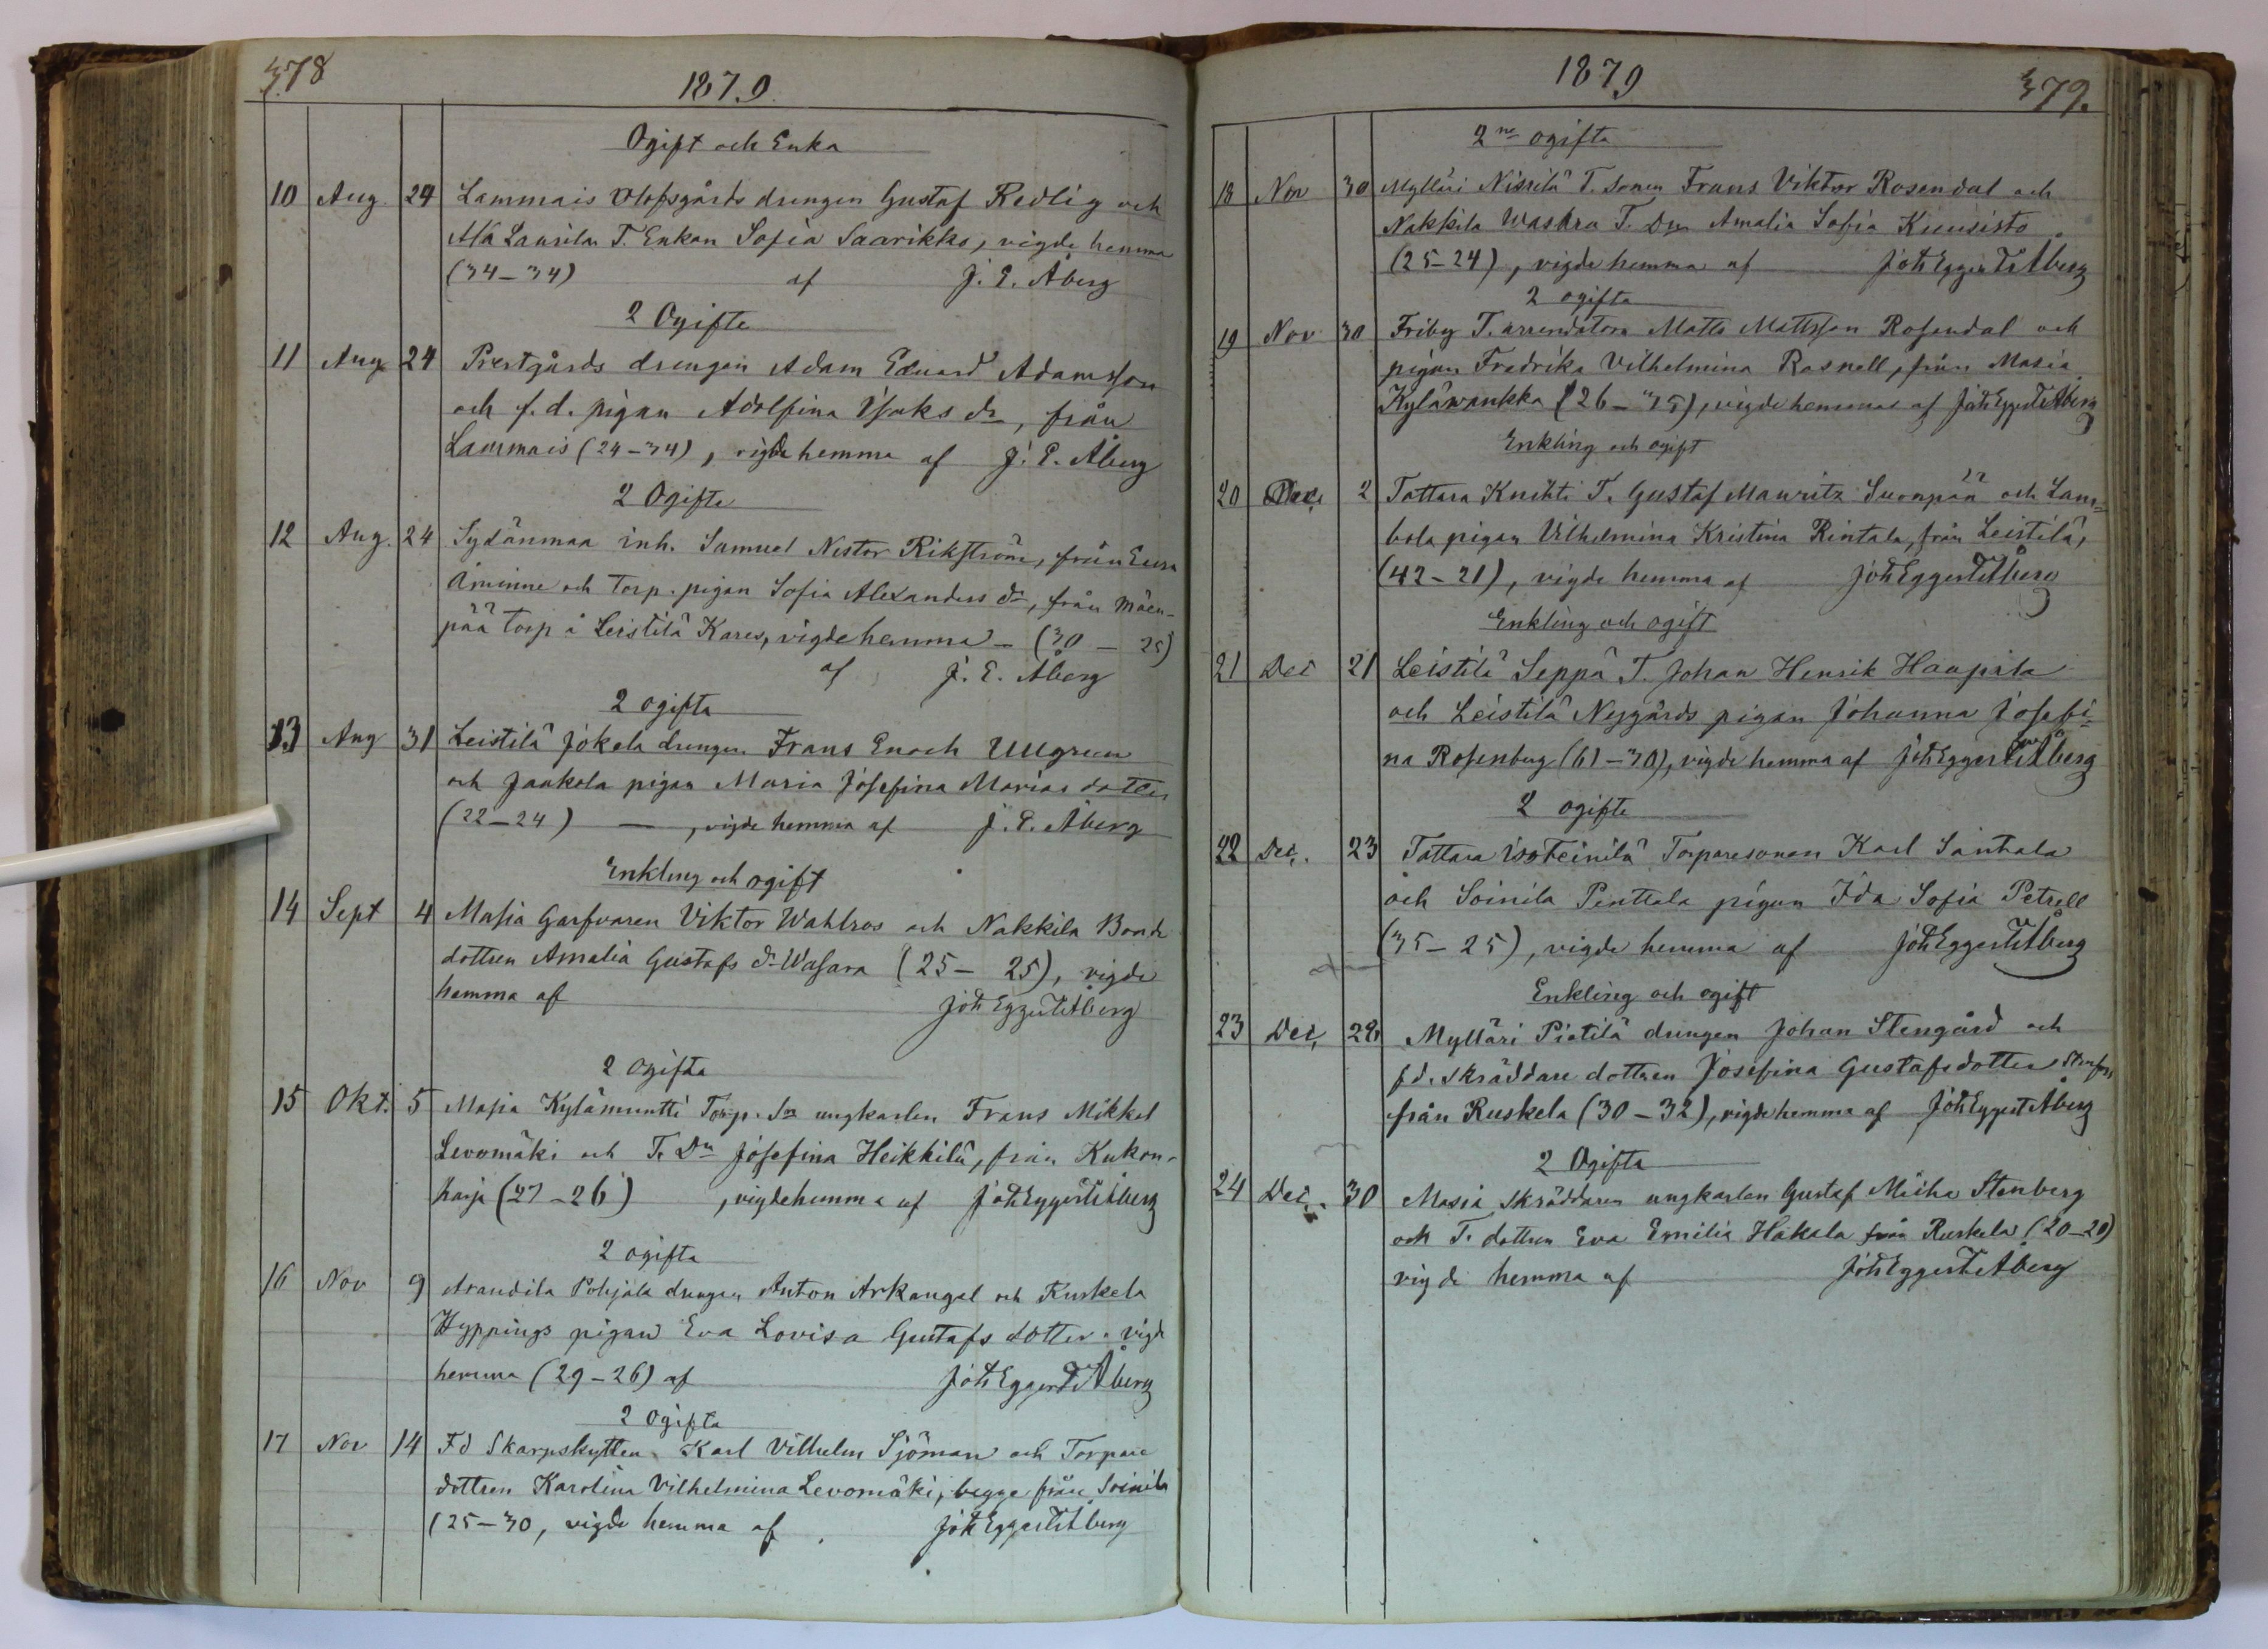 378
1879.
Ogift och Enka
10 Aug. 24 Lammais Olofsgårds drengen Gustaf Redlig och
Ala Laurila T. Enkan Sofia Saarikko, vigde hemma
(34-34) af J. E. Åberg
2 Ogifte
11 Aug 24 Prestgårds drengen Adam Eduard Adamsson
och f. d. pigan Adolfina Isaks dr, från
Lammais (24-34), vigde hemma af J. E. Åberg
2 Ogifte
12 Aug. 24 Sydänmaa inh. Samuel Nestor Rikström, från Eura
Åminne och Torp. pigan Sofia Alexanders dr, från Mäen-
pää torp å Leistilä Kares, vigde hemma - (30 - 25)
af J. E. Åberg
2 ogifta
13 Aug 31 Leistilä Jokela drengen Frans Enoch Ullgren
och Jaakola pigan Maria Josefina Marias dotter
(22-24) -, vigde hemma af J. E. Åberg
Enkling och ogift
14 Sept 4 Masia Garfvaren Viktor Wahlros och Nakkila Bonde
dottren Amalia Gustafs dr Wasara (25- 25), vigde
hemma af Joh Eggert Åberg
2 ogifta
15 Okt. 5 Masia Kylämuntti Torp. Sn ungkarlen Frans Mikkel
Levomäki och T. Dn Josefina Heikkilä, från Kukon-
harja (27-26), vigde hemma af Joh Eggert Åberg
2 ogifta
16 Nov 9 Arandila Pohjala drengen Anton Arkangel och Ruskela
Hyppings pigan Eva Lovisa Gustafs dotter. vigde
hemma (29-26) af Joh Eggert Åberg
2 Ogifta
17 Nov 14 Fd Skarpskytten Karl Vilhelm Sjöman och Torpare
dottren Karolina Vilhelmina Levomäki, begge från Soinila
(25-30, vigde hemma af Joh Eggert Åberg
1879
379.
2ne ogifta
18 Nov 30 Mylläri Nissilä T. Sonen Frans Viktor Rosendal och
Nakkila Waskra T. Dn Amalia Sofia Kuusisto
(25-24), vigde hemma af Joh Eggert Åberg
2 ogifta
19 Nov 30 Friby T. arrendatorn Matts Mattsson Rosendal och
pigan Fredrika Vilhelmina Rosnell, från Masia
Kylävankka (26-35), vigde hemma af Joh Eggert Åberg
Enkling och ogift
20 Dec. 2 Tattara Knihti T. Gustaf Mauritz Suonpää och Lam-
bola pigan Vilhelmina Kristina Rintala, från Leistilä,
(42-21), vigde hemma af Joh Eggert Åberg
Enkling och ogift
21 Dec 21 Leistilä Seppä T. Johan Henrik Haupila
och Leistilä Nygårds pigan Johanna Josefi-
na Rosenberg (61-30), vigde hemma af Joh Eggert Åberg
2 ogifte
22 Dec. 23 Tattara Isoteinilä Torparesonen Karl Santala
och Soinila Penttala pigan Ida Sofia Petrell
(35-25), vigde hemma af Joh Eggert Åberg
Enkling och ogift
23 Dec. 28 Mylläri Pietilä drengen Johan Stengård och
fd. skräddare dottren Josefina Gustafsdotter
från Ruskela (30-32), vigde hemma af Joh Eggert Åberg
2 Ogifta
24 Dec. 30 Masia skräddaren ungkarlen Gustaf Stenberg
och T. dottren Eva Emilia Hakala från Ruskela (20-20)
vigde hemma af Joh Eggert Åberg